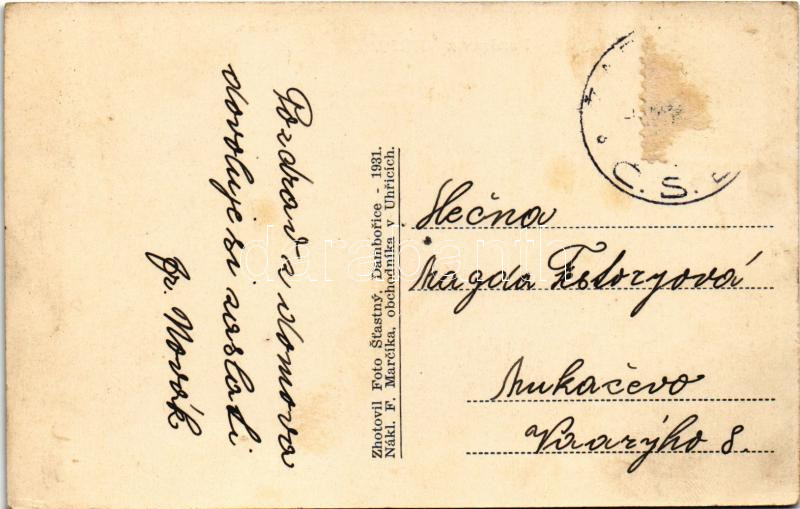 Pozdrav z domova
dovoluje si zaslati
Fr. Novák
Zhotovil Foto Šťastný, Dambořice - 1931.
Nákl. F. Marčíka, obchodníka v Uhřicích.
Č. S.
Slečna
Magda
Mukačevo
8.
darabanth